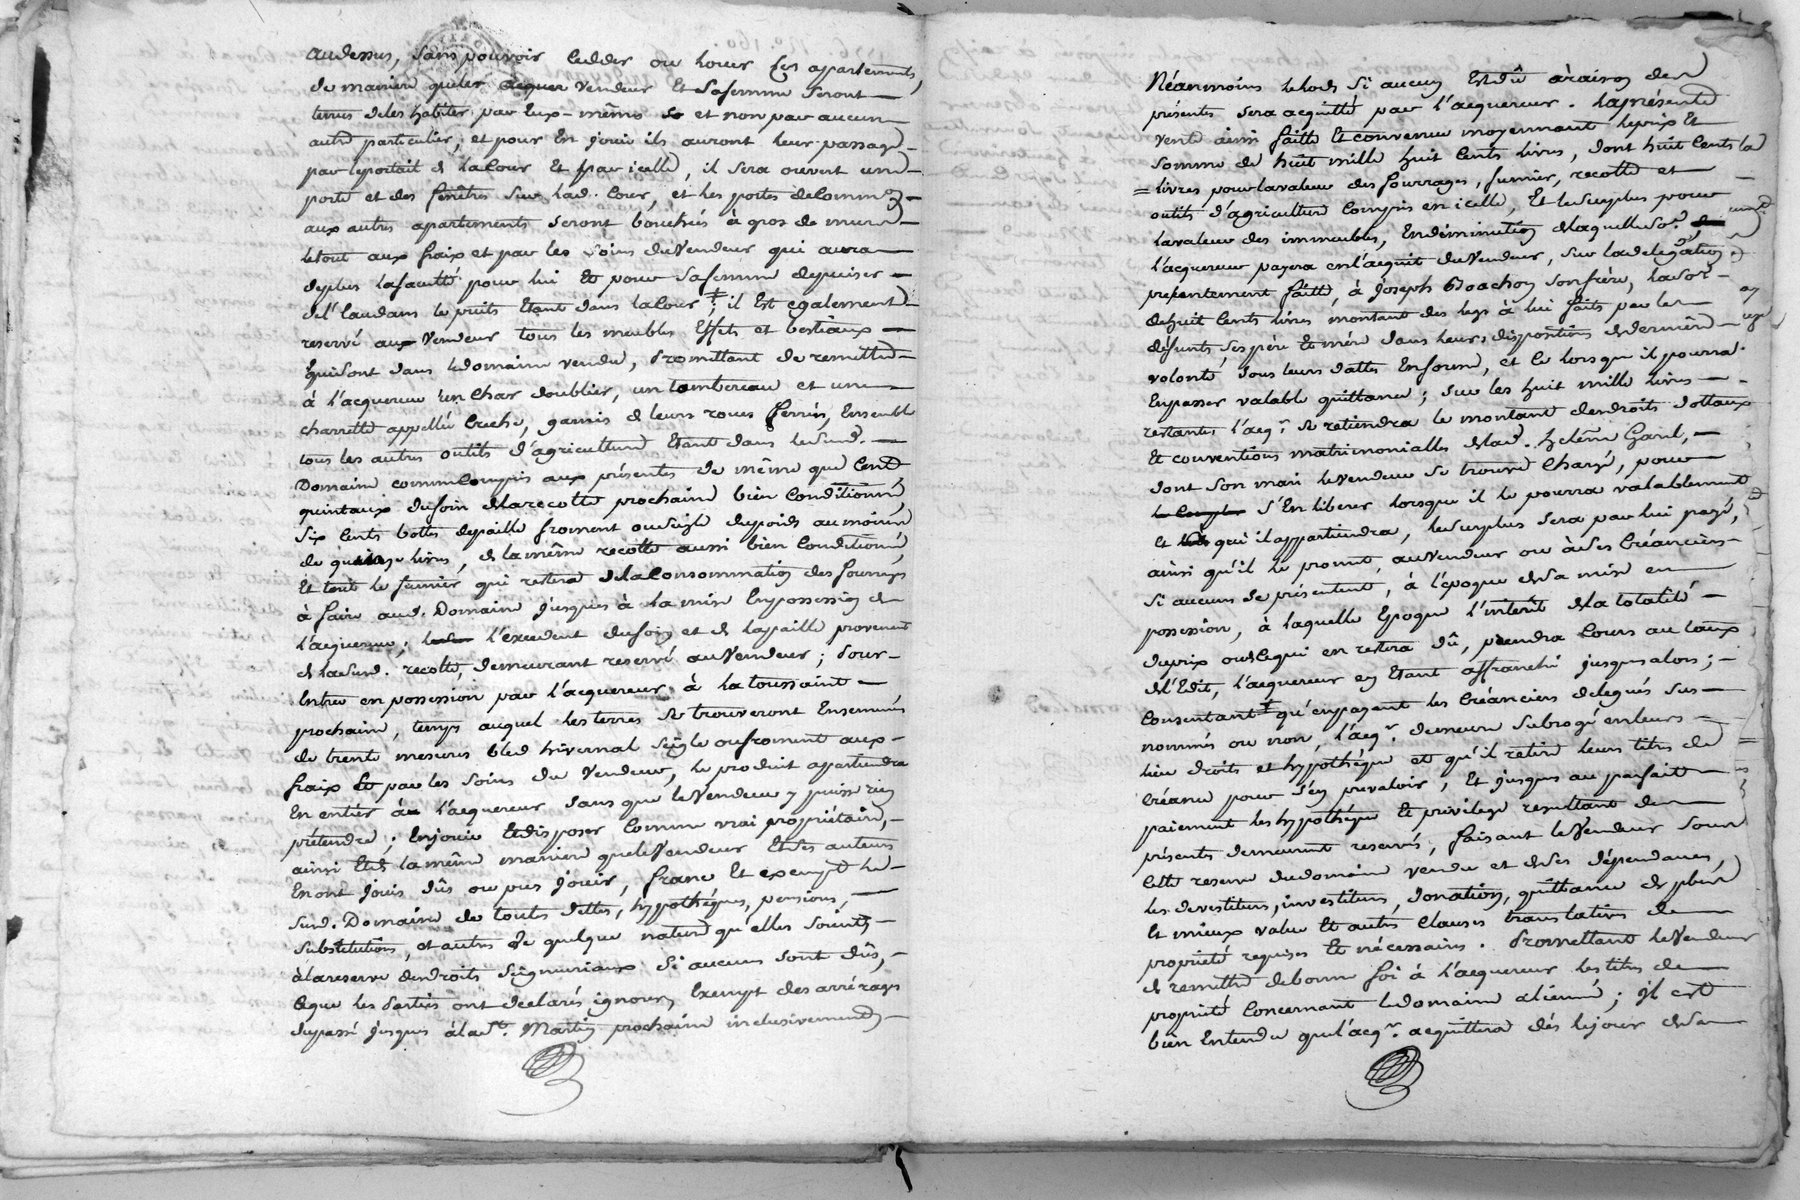 audessus, sans pouvoir cedder ou louer ces apartements,
de maniere que les vendeur et sa femme seront
tenus de les habiter par eux-mêmes et non par aucun
autre particulier, et pour en jouir ils auront leur passage
par le portail de la cour et par icelle, il sera ouvert une
porte et des fenêtres sur lad. cour, et les portes de comm.on
aux autres apartements seront bouchées à gros de murs
le tout aux fraix et par les soins du vendeur qui aura
de plus la faculté pour lui et pour sa femme de puiser
de l'eau dans le puits etant dans la cour; il est egalement
reservé aux vendeur tous les meubles effets et bestiaux
qui sont dans le domaine vendu, promettant de remettre
à l'acquereur un char doublier, un tombereau et une
charrette appellée creche, garnis de leurs roues ferrées, ensemble
tous les autres outils d'agriculture etant dans le susd.
Domaine comme compris aux présentes de même que cent
quintaux de foin de la recolte prochaine bien conditionné,
six cents bottes de paille froment ou seigle du poids au moins
de quinze livres, de la même recolte aussi bien conditionné,
et tout le fumier qui restera de la consommation des fourrages
à faire aud. Domaine jusques à la mise en possession de
l'acquereur; l'excedent du foin et de la paille provenant
de la susd. recolte, demeurant reservé au vendeur; pour
entrer en possession par l'acquereur à la toussaint
prochaine, temps auquel les terres se trouveront ensemencées
de trente mesures bled hivernal seigle ou froment aux
fraix et par les soins du vendeur, le produit apartiendra
en entier à l'acquereur sans que le vendeur y puisse rien
prétendre; en jouir et disposer comme vrai propriétaire,
ainsi et de la même maniere que le vendeur et ses auteurs
en ont jouis dûs ou pus jouir, franc et exempt le
susd. Domaine de toutes dettes, hypothéques, pensions,
substitutions, et autres de quelque nature qu'elles soients
à la reserve des droits seigneuriaux si aucuns sont dûs,
ce que les parties ont declarés ignorer, exempt des arrérages
du passé jusques à la St. Martin prochaine inclusivement
Néanmoins le lods si aucun est dû à raison des
présentes sera acquitté par l'acquereur. La présente
vente ainsi faitte et convenue moyennant le prix et
somme de huit mille huit cents livres, dont huit cents
livres pour la valeur des fourrages, fumier, recolte et
outils d'agriculture compris en icelle, et le surplus pour
la valeur des immeubles, en déminution de laquelle so.e
l'acquereur payera en l'acquit du vendeur, sur la delegation
presentement faitte, à Joseph Boachon son frere, la so.e
de huit cents livres montant des legs à lui faits par les
défunts ses père et mère dans leurs dispositions de derniere
volonté sous leurs dattes en forme, et ce lorsqu'il pourra
en passer valable quittance; sur les huit mille livres
restantes l'acq.r se retiendra le montant des droits dottaux
et conventions matrimonialles de lad. helène Gard,
dont son mari le vendeur se trouve chargé, pour
s'en liberer lorsque il le pourra valablement
et à qui il appartiendra, le surplus sera par lui payé,
ainsi qu'il le promet, au vendeur ou à ses créanciers
si aucuns se présentent, à l'époque de sa mise en
possession, à laquelle epoque l'interêt de la totalité
du prix ou de ce qui en restera dû, prendra cours au taux
de l'Edit, l'acquereur en etant affranchi jusques alors;
consentant qu'en payant les créanciers delegués sus
nommés ou non, l'acq.r demeure subrogé en leurs
lieu droits et hypothéque et qu'il retire leurs titres de
créance pour s'en prevaloir, et jusques au parfait
paiement les hypothéque et privilege resultant des
présentes demeurant reservés, faisant le vendeur sous
cette reserve du domaine vendu et de ses dépendances,
les devestiture, investiture, donation, quittance de plus
et mieux value et autres clauses translatives de
propriété requises et nécessaires. Promettant le vendeur
de remettre de bonne foi à l'acquereur les titres de
propriété concernant le domaine aliené; il est
bien entendu que l'acq.r acquittera dès le jour de sa